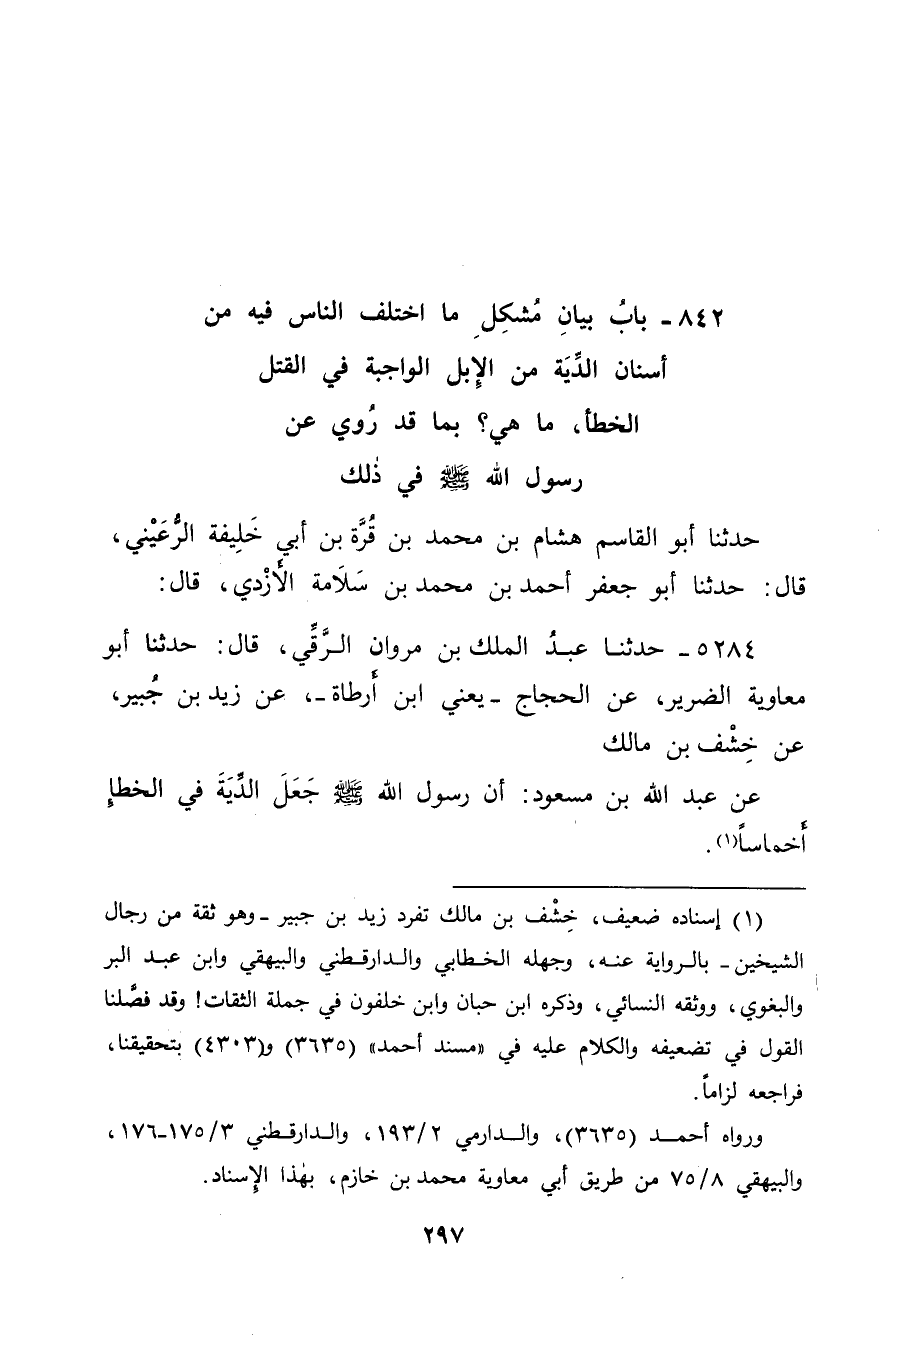 ٨٤٢ـ بابُ بيانِ مُشكِلِ ما اختلف الناس فيه من
أسنان الدِّيَة من الإِبل الواجبة في القتل
الخطأ، ما هي؟ بما قد رُوي عن
رسول الله ﷺ في ذٰلك
حدثنا أبو القاسم هشام بن محمد بن قُرَّة بن أبي خَلِيفة الرُّعَيْني،
قال: حدثنا أبو جعفر أحمد بن محمد بن سَلَامة الأَزْدي، قال:
٥٢٨٤ ـ حدثنا عبدُ الملك بن مروان الرَّقِّي، قال: حدثنا أبو
معاوية الضرير، عن الحجاج ـ يعني ابن أَرطاة ـ، عن زيد بن جُبير،
عن خِشْف بن مالك
عن عبد الله بن مسعود: أن رسول الله ﷺ جَعَلَ الدِّيَةَ في الخطإِ
أَخماساً(١).
(١) إسناده ضعيف، خِشْف بن مالك تفرد زيد بن جبير ـ وهو ثقة من رجال
الشيخين ـ بالرواية عنه، وجهله الخطابي والدارقطني والبيهقي وابن عبد البر
والبغوي، ووثقه النسائي، وذكره ابن حبان وابن خلفون في جملة الثقات! وقد فصَّلنا
القول في تضعيفه والكلام عليه في «مسند أحمد» (٣٦٣٥) و(٤٣٠٣) بتحقيقنا،
فراجعه لزاماً.
ورواه أحمد (٣٦٣٥)، والدارمي ١٩٣/٢، والدارقطني ١٧٥/٣ـ١٧٦،
والبيهقي ٧٥/٨ من طريق أبي معاوية محمد بن خازم، بهٰذا الإِسناد.
٢٩٧